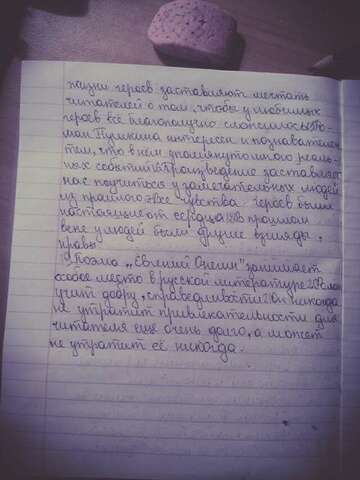 жизни героев заставляют мечтать
читателей о том, чтобы у любимых
героев всё благополучно сложилось. Ро-
ман Пушкина интересен и познавателен
тем, что в нём упомянуто много реаль-
ных событий. Произведение заставляет
нас поучиться у замечательных людей
из прошлого. Все чувства героев были
настоящие, от сердца. В прошлом
веке у людей были другие взгляды,
нравы.
Поэма „Евгений Онегин" занимает
особое место в русской литературе. Роман
учит добру, справедливости. Он никогда
не утратит привлекательности для
читателя ещё очень долго, а может
не утратит её никогда.